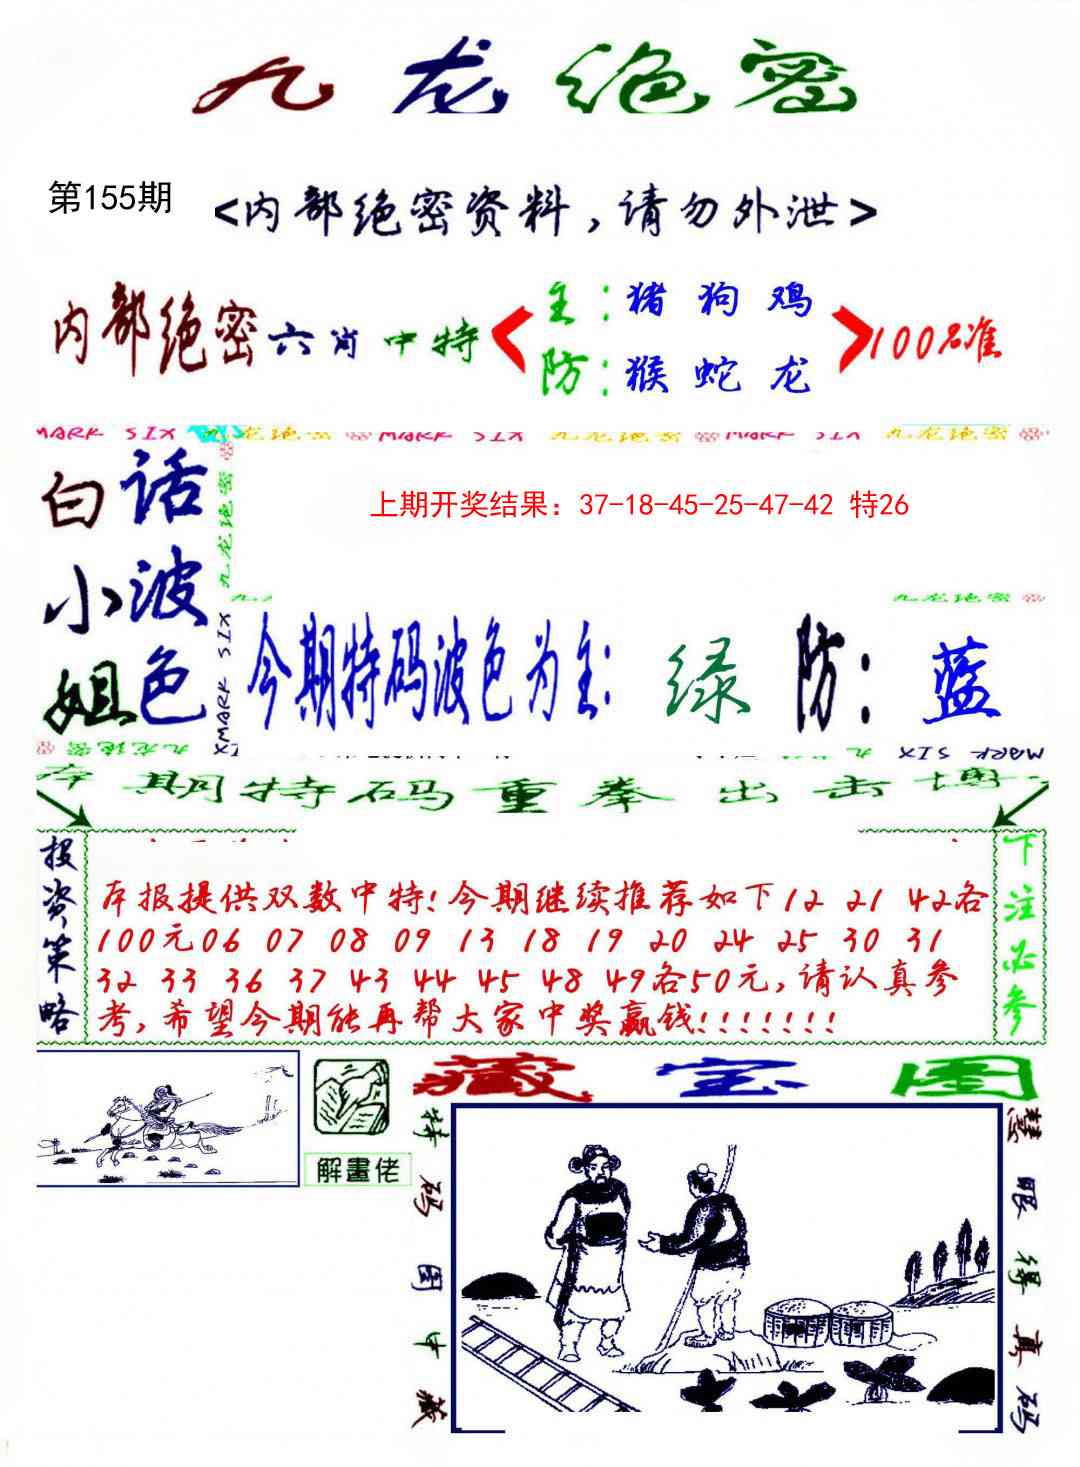 九龙绝密
第155期
<内部绝密资料，请勿外泄>
内部绝密六肖中特
主：猪狗鸡
防：猴蛇龙
100%准
MARK SIX 九龙绝密 MARK SIX 九龙绝密 MARK SIX 九龙绝密
白小姐
话波色
九龙绝密
上期开奖结果：37-18-45-25-47-42 特26
九龙绝密
今期特码波色为主：绿 防：蓝
MARK SIX
九龙绝密
MARK SIX
本期特码重拳出击博
投资策略
本报提供双数中特！今期继续推荐如下12 21 42各
100元06 07 08 09 13 18 19 20 24 25 30 31
32 33 36 37 43 44 45 48 49各50元，请认真参
考，希望今期能再帮大家中奖赢钱！！！！！！！
下注必参
解畫佬
藏宝图
特码图中藏
慧眼得真码